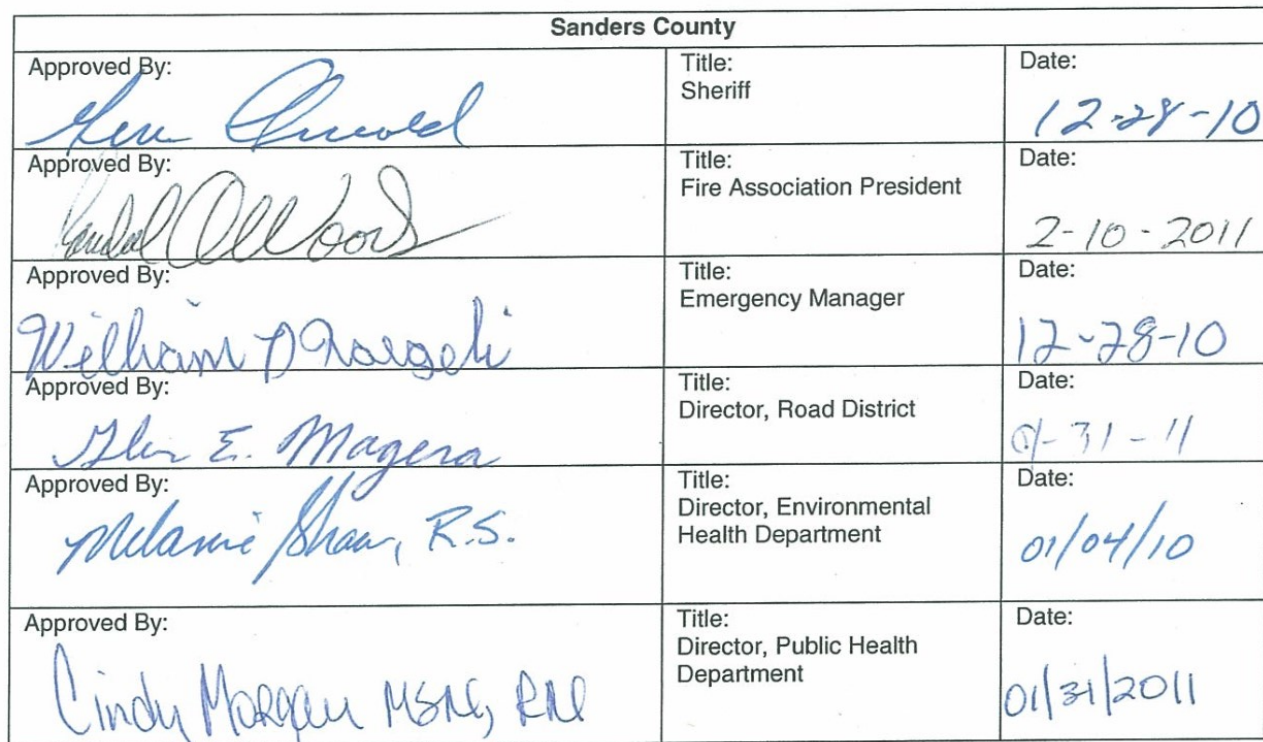 Sanders County
Approved By:
Title:
Sheriff
Date:
12-28-10
Approved By:
Randal Woods
Title:
Fire Association President
Date:
2-10-2011
Approved By:
William D
Title:
Emergency Manager
Date:
12-28-10
Approved By:
Glen E. Magera
Title:
Director, Road District
Date:
01-31-11
Approved By:
Melanie Shaw, R.S.
Title:
Director, Environmental
Health Department
Date:
01/04/10
Approved By:
Cindy Morgan MSN, RN
Title:
Director, Public Health
Department
Date:
01/31/2011